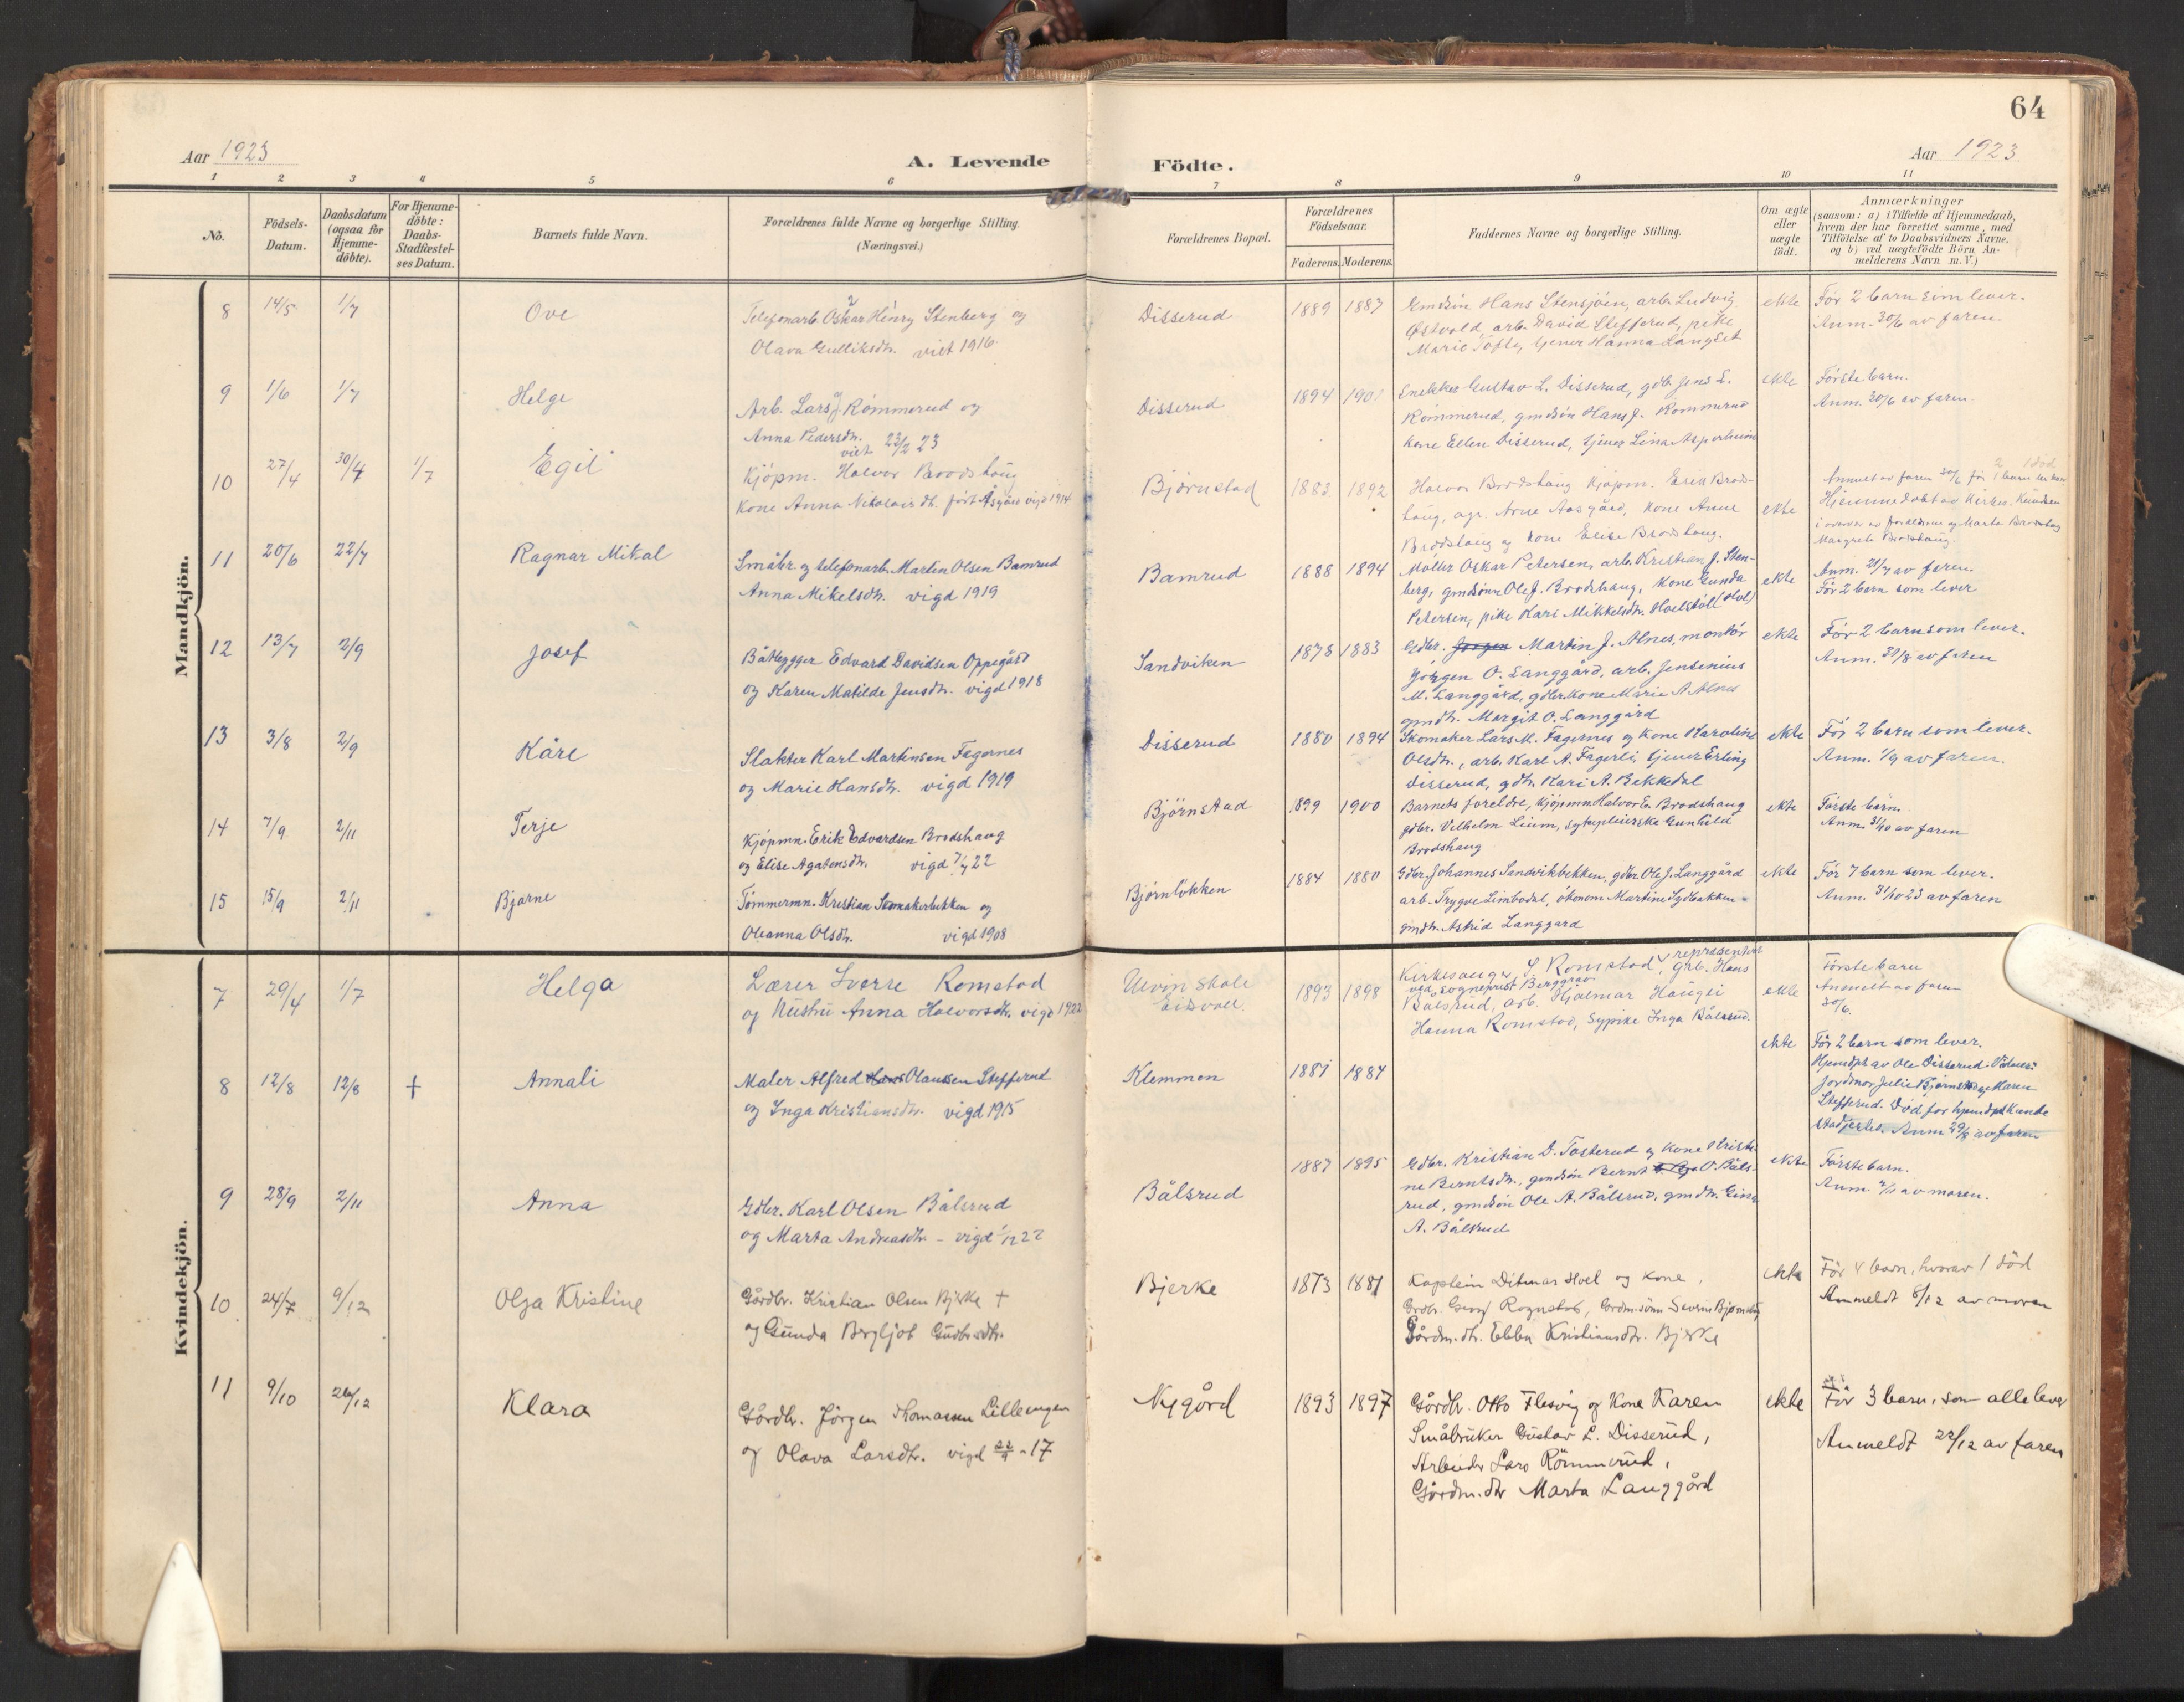 64
Aar 1923
A. Levende
Födte.
Aar 1923
1 2 3 4 5 6 7 8 9 10 11
No.
Födsels-
Datum.
Daabsdatum
(ogsaa for
Hjemme-
döbte).
For Hjemme-
döbte:
Daabs-
Stadfæstel-
ses Datum.
Barnets fulde Navn.
Forældrenes fulde Navne og borgerlige Stilling.
(Næringsvei.)
Forældrenes Bopæl.
Forældrenes
Födselsaar.
Faderens. Moderens.
Faddernes Navne og borgerlige Stilling.
Om ægte
eller
uægte
födt.
Anmærkninger
(saasom: a) i Tilfælde af Hjemmedaab,
hvem der har forrettet samme, med
Tilföielse af to Daabsvidners Navne,
og b) ved uægtefödte Börn An-
melderens Navn m. V.)
Mandkjön.
8 14/5 1/7 Ove
Telefonarb. Oskar Henry Stenberg og
Olava Gulliksdtr. viet 1916.
Disserud 1889 1883
Gmdsön Hans Stensjöen, arb. Ludvig
Östvold, arb. David Stefferud, pike
Marie Tofte, tjener Hanna Langset
ekte
Før 2 barn som lever.
Anm. 30/6 av faren.
9 1/6 1/7 Helge
Arb. Lars J. Römmerud og
Anna Pedersdtr.
viet 23/2 23
Disserud 1894
Snekker Gustav L. Disserud, gdb. Jens L.
Römmerud, gmdsön Hans J. Römmerud
kone Ellen Disserud, tjener Lina Asperheim
ekte
Første barn.
Anm. 30/6 av faren.
10 27/4 30/4 1/7 Egil
Kjöpm. Halvor Brodshaug
Kone Anna Nikolais dt. født Åsgård vigd 1914
Bjørnstad 1883 1892
Halvor Brodshaug Kjöpm. Erik Brods-
haug, agr. Arne Aasgård, Kone Anne
Brodshaug og kone Elise Brodshaug.
ekte
Hjemmedøbt av Kirkes. Knudsen
Margrete Brodshaug.
11 20/6 22/7 Ragnar Mikal
Småbr. og telefonarb. Martin Olsen Bamrud
Anna Mikelsdtr. vigd 1919
Bamrud 1888 1894
Møller Oskar Petersen, arb. Kristian J. Sten-
berg, gmdsönn Ole J. Brodshaug, kone Gunda
Petersen, pike Kari Mikkelsdtr. Hoelstöll (Hol)
ekte
Anm. 21/7 av faren.
Før 2 barn som lever
12 13/7 2/9 Josef
Båtbygger Edvard Davidsen Oppegård
og Karen Matilde Jensdtr. vigd 1918
Sandviken 1878 1883
Gdbr. Jörgen Martin J. Alnes, montör
Jörgen O. Langgård, arb. Jensenius
M. Langgård, gdbr. kone Marie A. Alnes
gmdtr. Margit O. Langgård
ekte
Før 2 barn som lever.
Anm. 31/8 av faren
13 3/8 2/9 Kåre
Slakter Karl Martinsen Fagernes
og Marie Hansdtr. vigd 1919
Disserud 1880 1894
Skomaker Lars M. Fagernes og kone Karoline
Olsdtr., arb. Karl A. Fagerli, tjener Erling
Disserud, gdtr. Kari A. Bekkedal
ekte
Før 2 barn som lever.
Anm. 1/9 av faren.
14 7/9 2/11 Terje
Kjöpmn. Erik Edvardsen Brodshaug
og Elise Agatonsdtr. vigd 7/7 22
Björnstad 1899 1900
Barnets foreldre, kjöpmn Halvor E. Brodshaug
gdbr. Vilhelm Lium, Gunhild
Brodshaug
ekte
Første barn.
Anm. 31/10 av faren
15 15/9 2/11 Bjarne
Tømmermn. Kristian Skomakerbekken og
Oleanna Olsdtr. vigd 1908
Björnlökken 1884 1880
Gdbr. Johannes Sandvikbekken, gdbr. Ole J. Langgård
arb. Trygve Limbodal, ökonom Martine Sydbakken
gmdtr. Astrid Langgård
ekte
Før 7 barn som lever.
Anm. 31/10 23 av faren
Kvindekjön.
7 29/4 1/7 Helga
Lærer Sverre Romstad
og Hustru Anna Halvorsdtr. vigd 1922
Uvin Skole
Eidsvoll. 1893 1898
Kirkesanger S. Romstad, representert
ved sogneprest Berggrav grb. Hans
Bålsrud, arb. Hjalmar Haugli
Hanna Romstad, Sypike Inga Bålsrud.
ekte
Første barn
Anmelt av faren
30/6.
8 12/8 12/8 † Annali
Maler Alfred Hans Olaussen Stefferud
og Inga Kristiansdtr. vigd 1915
Klemmen 1881 1884
ekte
Før 2 barn som lever.
Hjemdpt av Ole Disserud. Vidner:
Jordmor Julie Björnstad og Karen
Stefferud. Død før hjemdpt kunde
stadfestes. Anm 29/8 av faren
9 28/9 2/11 Anna
Gdbr. Karl Olsen Bålsrud
og Marta Andreasdtr. – vigd 1/12 22
Bålsrud 1887 1895
Gdbr. Kristian D. Tosterud og kone Kristi-
ne Berntsdtr., gmdsön Bernt O. Båls-
rud, gmdsön Ole A. Bålsrud, gmdtr. Gina
A. Bålsrud
ekte
Første barn.
Anm. 2/11 av moren.
10 24/7 9/12 Olga Kristine
Gårdbr. Kristian Olsen Bjerke †
og Gunda Bergljot Gudbr.dtr.
Bjerke 1873 1881
Kaptein Ditmar Hoel og kone,
Grdbr. Georg Rognstad, Grdm.sönn Severin Bjørnstad,
Gårdm.dtr. Ebba Kristiansdtr. Bjerke
ekte
Før 4 barn, hvorav 1 død
Anmeldt 6/12 av moren
11 9/10 26/12 Klara
Gårdbr. Jörgen Thomassen Lilleengen
og Olava Larsdtr. vigd 22/9 - 17
Nygård 1893 1897
Gårdbr. Otto Flesvig og Kone Karen
Småbruker Gustav L. Disserud,
Arbeider Lars Römmerud,
Gårdm.dtr Marta Langgård
ekte
Før 3 barn, som alle lever
Anmeldt 22/12 av faren